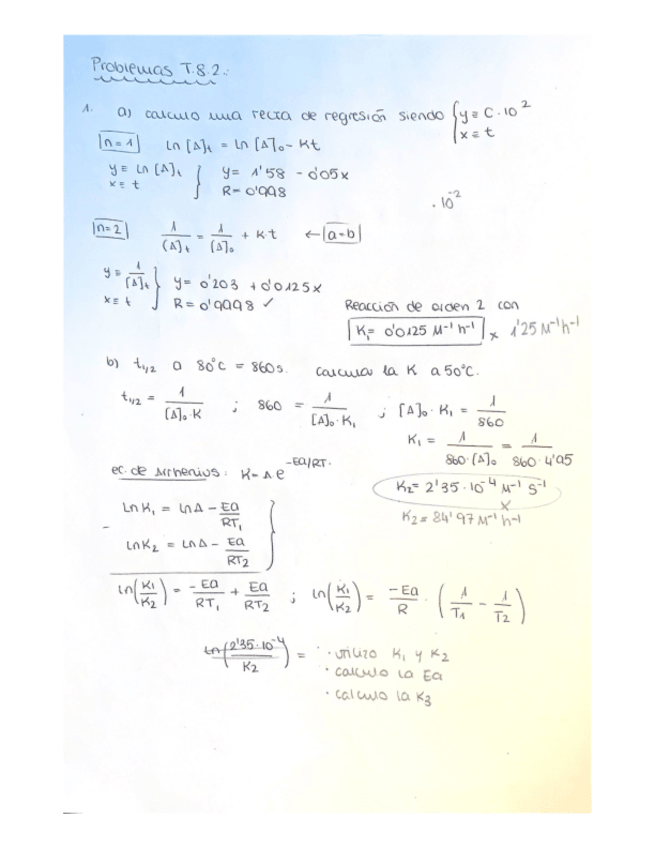 Problemas T.8.2.:
1. a) calculo una recta de regresión siendo { y ≡ C·10²
x ≡ t
n=1 Ln [A]t = Ln [A]₀ - Kt
y ≡ Ln [A]t } y = 1'58 - 0'05x
x ≡ t R = 0'998
·10⁻²
n=2 1/[A]t = 1/[A]₀ + Kt ← a=b
y ≡ 1/[A]t } y = 0'203 + 0'0125x
x ≡ t R = 0'9998 ✓
Reacción de orden 2 con
K₁ = 0'0125 M⁻¹h⁻¹ x 1'25 M⁻¹h⁻¹
b) t1/2 a 80°C = 860s. calcular la K a 50°C.
t1/2 = 1/[A]₀·K ; 860 = 1/[A]₀·K₁ ; [A]₀·K₁ = 1/860
K₁ = 1/860·[A]₀ = 1/860·4'95
ec. de Arrhenius: K = A e^-Ea/RT.
K₂ = 2'35·10⁻⁴ M⁻¹ s⁻¹
x
K₂ = 84'97 M⁻¹h⁻¹
Ln K₁ = Ln A - Ea/RT₁
-
Ln K₂ = Ln A - Ea/RT₂
Ln(K₁/K₂) = -Ea/RT₁ + Ea/RT₂ ; Ln(K₁/K₂) = -Ea/R · (1/T₁ - 1/T₂)
Ln(2'35·10⁻⁴/K₂) = · utilizo K₁ y K₂
· calculo la Ea
· calculo la K₃